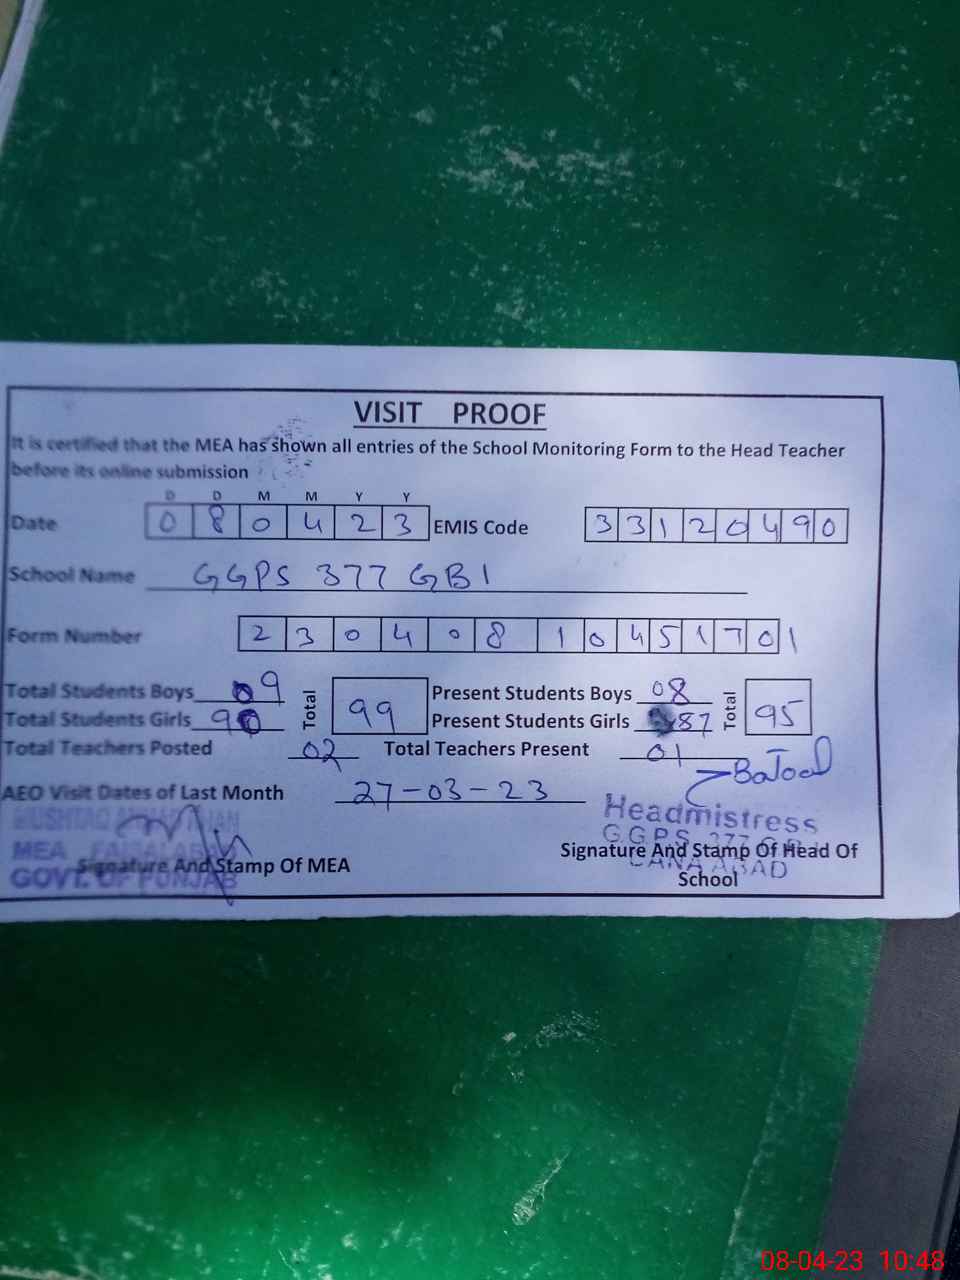 VISIT PROOF
It is certified that the MEA has shown all entries of the School Monitoring Form to the Head Teacher
before its online submission
D D M M Y Y
Date 0 8 0 4 2 3 EMIS Code 3 3 1 2 0 4 9 0
School Name GGPS 377 GB 1
Form Number 2 3 0 4 0 8 1 0 4 5 1 7 0 1
Total Students Boys 09 Total 99 Present Students Boys 08 Total 95
Total Students Girls 90 Present Students Girls 87
Total Teachers Posted 02 Total Teachers Present 01
Batool
AEO Visit Dates of Last Month 27-03-23
Headmistress
MUSHTAQ
G.G.P.S. 377
MEA FAISALABAD
Signature And Stamp Of MEA Signature And Stamp Of Head Of
School
GOVT. OF PUNJAB
08-04-23 10:48